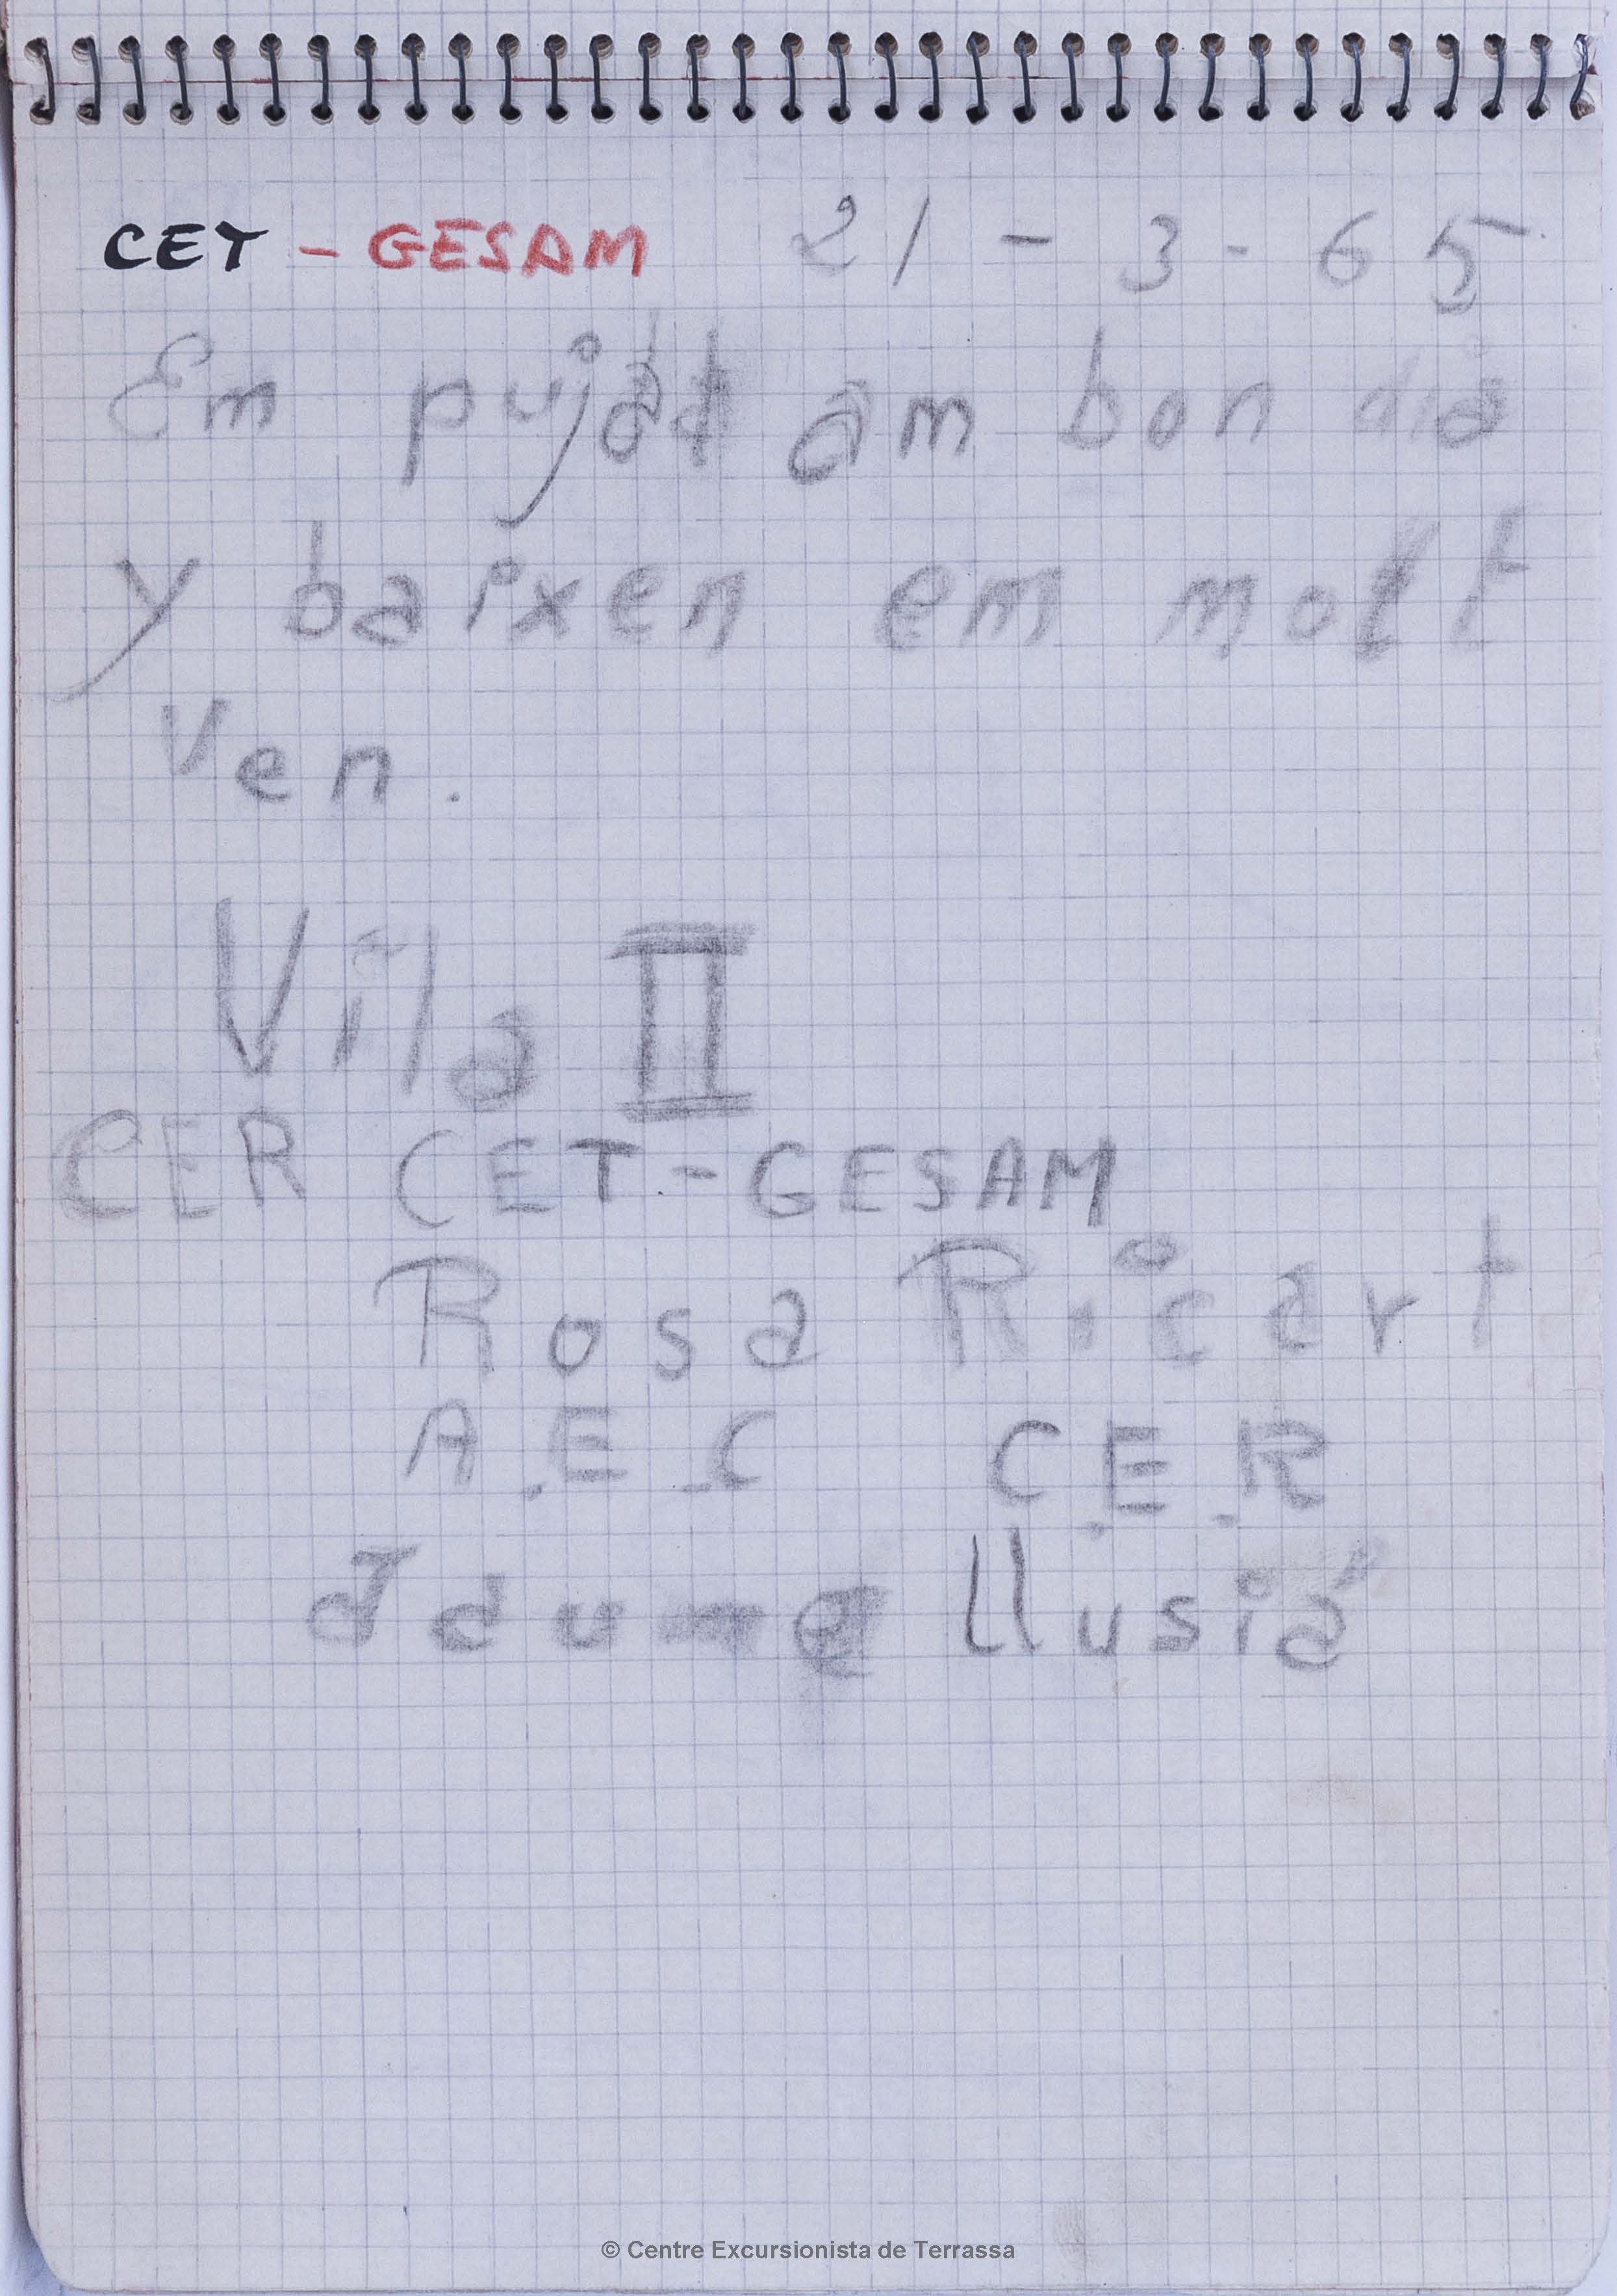 CET - GESAM 21 - 3 - 65
Em pujat am bon dia
y baixen em molt
ven.
Vila II
CER CET - GESAM
Rosa Ricart
A.E.C C.E.R
Jaume Llusiá
© Centre Excursionista de Terrassa